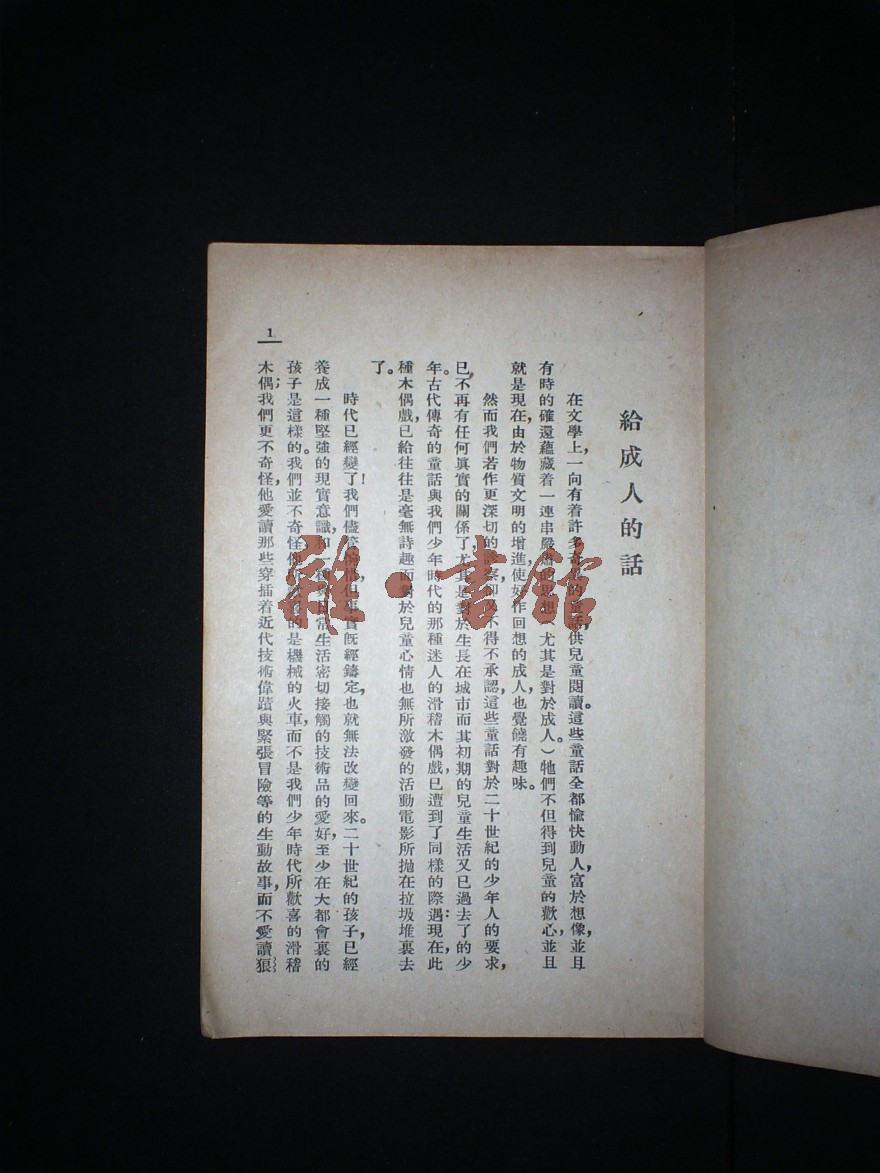 給成人的話
在文學上，一向有着許多的童話供兒童閱讀。這些童話全都愉快動人，富於想像，並且
有時的確還蘊藏着一連串嚴肅的思想，尤其是對於成人。）牠們不但得到兒童的歡心，並且
就是現在，由於物質文明的增進，使好作回想的成人，也覺饒有趣味。
然而我們若作更深切的觀察，却又不得不承認，這些童話對於二十世紀的少年人的要求，
已不再有任何真實的關係了，尤其是對於生長在城市而其初期的兒童生活又已過去了的少
年。古代傳奇的童話與我們少年時代的那種迷人的滑稽木偶戲，已遭到了同樣的際遇：現在，此
種木偶戲，已給往往是毫無詩趣而對於兒童心情也無所激發的活動電影所拋在垃圾堆裏去
了。
時代已經變了！我們儘管，但事實既經鑄定，也就無法改變回來。二十世紀的孩子，已經
養成一種堅強的現實意識，和一種日常生活密切接觸的技術品的愛好，至少在大都會裏的
孩子是這樣的。我們並不奇怪他的是機械的火車，而不是我們少年時代所歡喜的滑稽
木偶；我們更不奇怪，他愛讀那些穿插着近代技術偉蹟與緊張冒險等的生動故事，而不愛讀狼
1
雜·書館